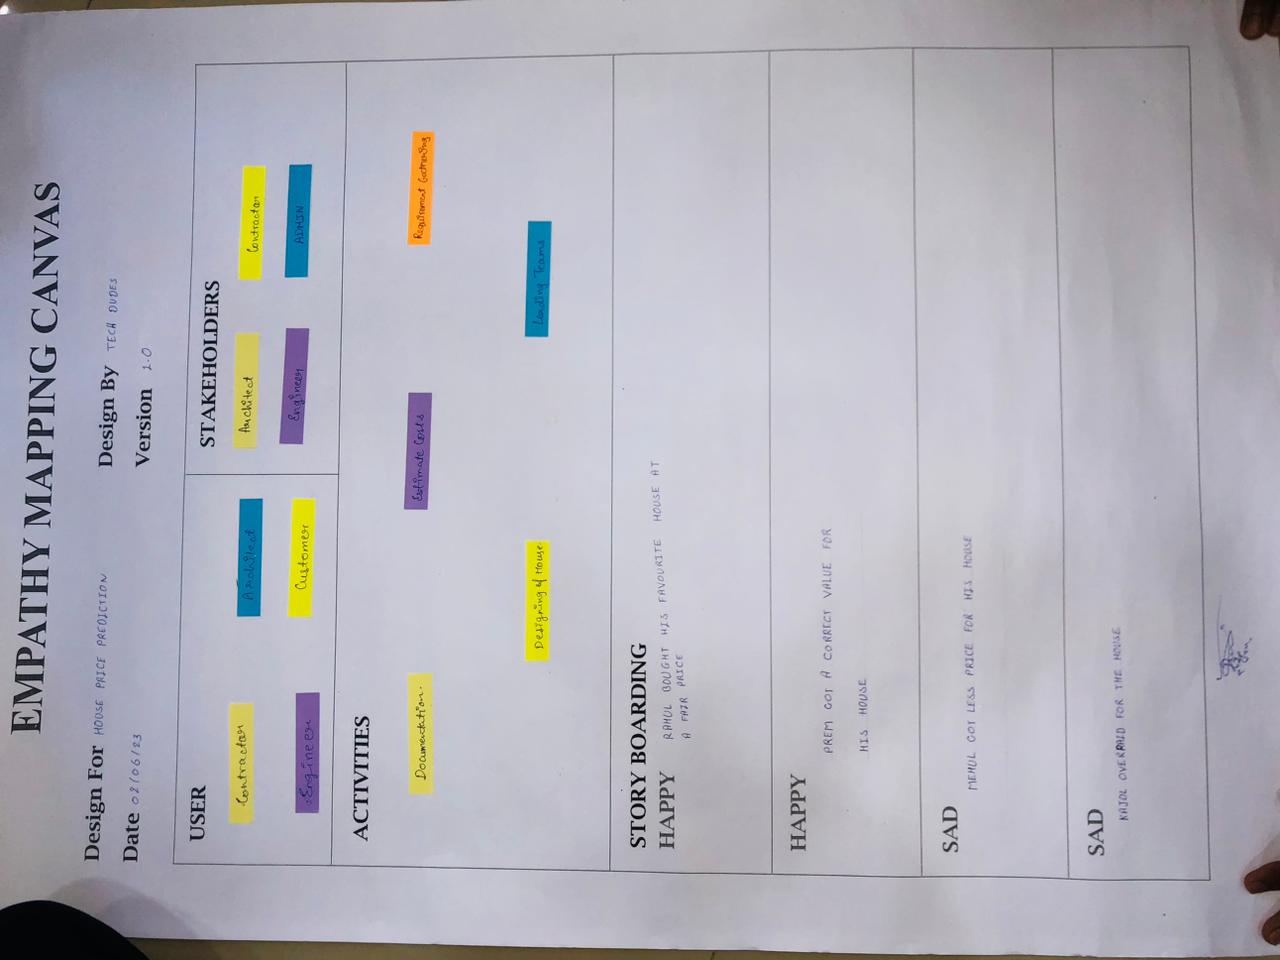 EMPATHY MAPPING CANVAS
Design For HOUSE PRICE PREDICTION
Design By TECH DUDES
Date 02/06/23
Version 1.0
USER
Contractor
Architect
Engineer
Customer
STAKEHOLDERS
Architect
Contractor
Engineer
ADMIN
ACTIVITIES
Documentation.
Estimate Costs
Requirement Gathering
Designing of House.
Leading Teams
STORY BOARDING
HAPPY
RAHUL BOUGHT HIS FAVOURITE HOUSE AT
A FAIR PRICE
HAPPY
PREM GOT A CORRECT VALUE FOR
HIS HOUSE
SAD
MEHUL GOT LESS PRICE FOR HIS HOUSE
SAD
KAJOL OVERPAID FOR THE HOUSE